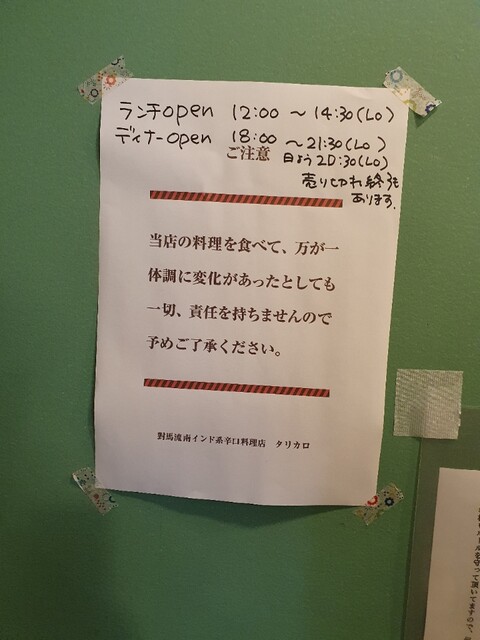 ランチopen 12:00 ～ 14:30(LO)
ディナーopen 18:00 ～21:30(LO)
ご注意 日よう20:30(LO)
売り切れ終了も
あります。
当店の料理を食べて、万が一
体調に変化があったとしても
一切、責任を持ちませんので
予めご了承ください。
對馬流南インド系辛口料理店 タリカロ
ルールを守って頂いてますので、